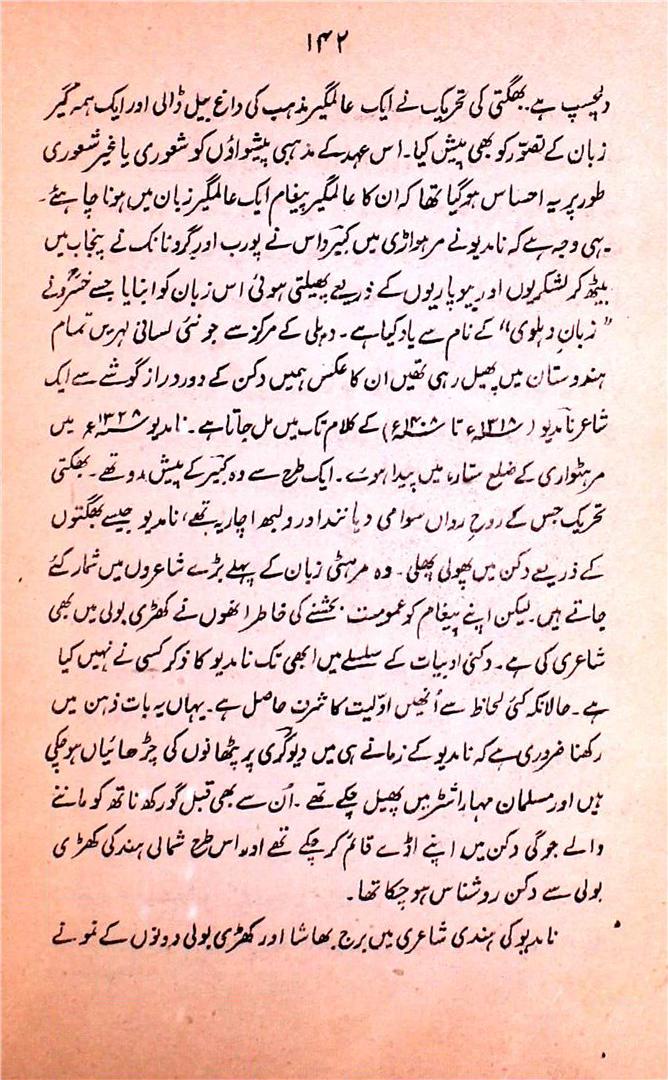 ۱۴۲
دلچسپ ہے۔ بھگتی کی تحریک نے ایک عالمگیر مذہب کی داغ بیل ڈالی اور ایک ہمہ گیر
زبان کے تصوّر کو بھی پیش کیا۔ اس عہد کے مذہبی پیشواؤں کو شعوری یا غیر شعوری
طور پر یہ احساس ہوگیا تھا کہ ان کا عالمگیر پیغام ایک عالمگیر زبان میں ہونا چاہئے۔
یہی وجہ ہے کہ نامدیو نے مرہواڑی میں کبیر داس نے پورب اور گرونانک نے پنجاب میں
بیٹھ کر لشکریوں اور بیوپاریوں کے ذریعے پھیلتی ہوئی اس زبان کو اپنایا جسے خسرو نے
”زبانِ دہلوی“ کے نام سے یاد کیا ہے۔ دہلی کے مرکز سے جو نئی لسانی لہریں تمام
ہندوستان میں پھیل رہی تھیں ان کا عکس ہمیں دکن کے دور دراز گوشے سے ایک
شاعر نامدیو (۱۳۱۸ء تا ۱۴۰۸ء) کے کلام تک میں مل جاتا ہے۔ نامدیو ۱۳۲۸ء میں
مرہٹواری کے ضلع ستارہ میں پیدا ہوئے۔ ایک طرح سے وہ کبیر کے پیش رو تھے۔ بھکتی
تحریک جس کے روحِ رواں سوامی دیانند اور ولبھ اچاریہ تھے، نامدیو جیسے بھگتوں
کے ذریعے دکن میں پھولی پھلی۔ وہ مرہٹی زبان کے پہلے بڑے شاعروں میں شمار کئے
جاتے ہیں۔ لیکن اپنے پیغام کو عمومیت بخشنے کی خاطر انھوں نے کھڑی بولی میں بھی
شاعری کی ہے۔ دکنی ادبیات کے سلسلے میں ابھی تک نامدیو کا ذکر کسی نے نہیں کیا
ہے۔ حالانکہ کئی لحاظ سے اُنھیں اوّلیت کا شرف حاصل ہے۔ یہاں یہ بات ذہن میں
رکھنا ضروری ہے کہ نامدیو کے زمانے ہی میں دیوگری پر پٹھانوں کی چڑھائیاں ہوچکی
ہیں اور مسلمان مہاراشٹر میں پھیل چکے تھے۔ اُن سے بھی قبل گورکھ ناتھ کو ماننے
والے جوگی دکن میں اپنے اڈے قائم کرچکے تھے اور اس طرح شمالی ہند کی کھڑی
بولی سے دکن روشناس ہوچکا تھا۔
نامدیو کی ہندی شاعری میں برج بھاشا اور کھڑی بولی دونوں کے نمونے